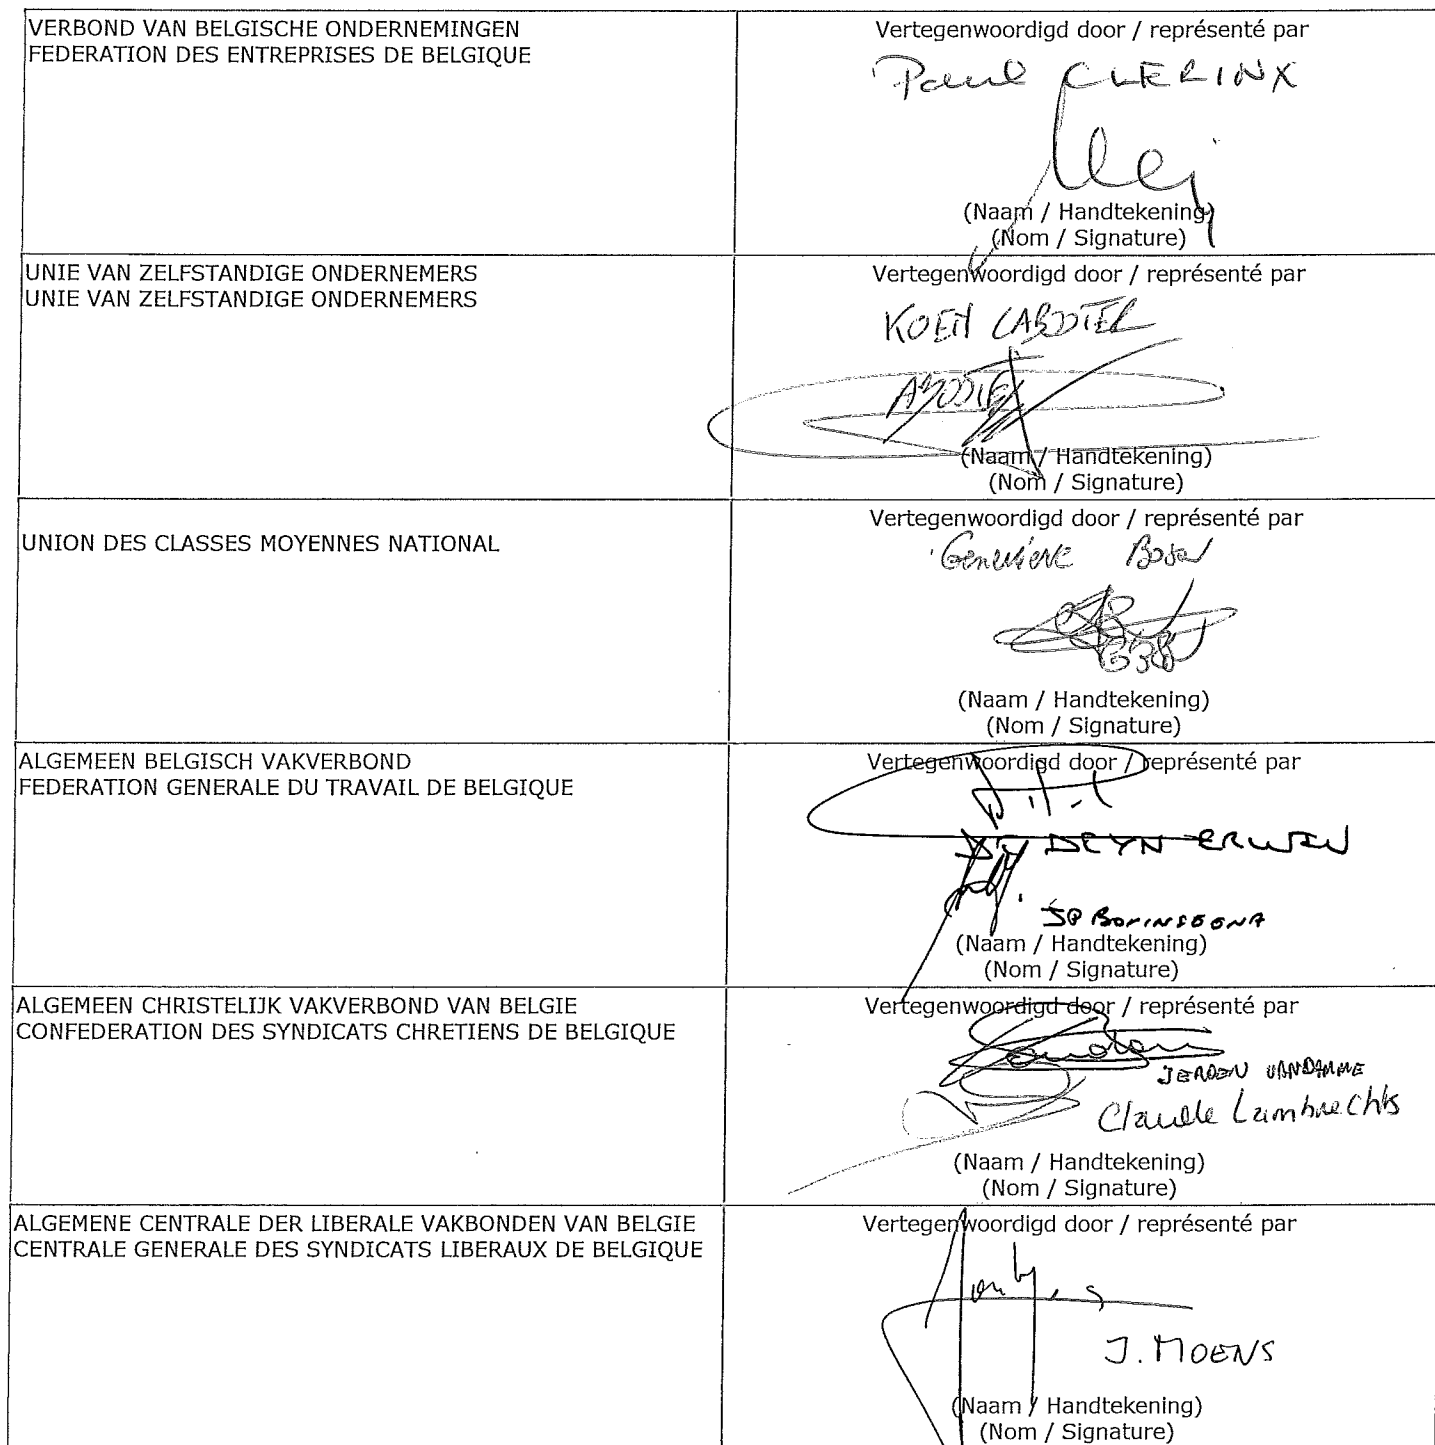 VERBOND VAN BELGISCHE ONDERNEMINGEN
FEDERATION DES ENTREPRISES DE BELGIQUE
Vertegenwoordigd door / représenté par
Paul CLERINX
(Naam / Handtekening)
(Nom / Signature)
UNIE VAN ZELFSTANDIGE ONDERNEMERS
UNIE VAN ZELFSTANDIGE ONDERNEMERS
Vertegenwoordigd door / représenté par
KOEN CABOOTER
(Naam / Handtekening)
(Nom / Signature)
UNION DES CLASSES MOYENNES NATIONAL
Vertegenwoordigd door / représenté par
Geneviève
(Naam / Handtekening)
(Nom / Signature)
ALGEMEEN BELGISCH VAKVERBOND
FEDERATION GENERALE DU TRAVAIL DE BELGIQUE
Vertegenwoordigd door / représenté par
DEYN ERWIN
(Naam / Handtekening)
(Nom / Signature)
ALGEMEEN CHRISTELIJK VAKVERBOND VAN BELGIE
CONFEDERATION DES SYNDICATS CHRETIENS DE BELGIQUE
Vertegenwoordigd door / représenté par
JEROEN VANDAMME
Claude Lambrechts
(Naam / Handtekening)
(Nom / Signature)
ALGEMENE CENTRALE DER LIBERALE VAKBONDEN VAN BELGIE
CENTRALE GENERALE DES SYNDICATS LIBERAUX DE BELGIQUE
Vertegenwoordigd door / représenté par
J. MOENS
(Naam / Handtekening)
(Nom / Signature)